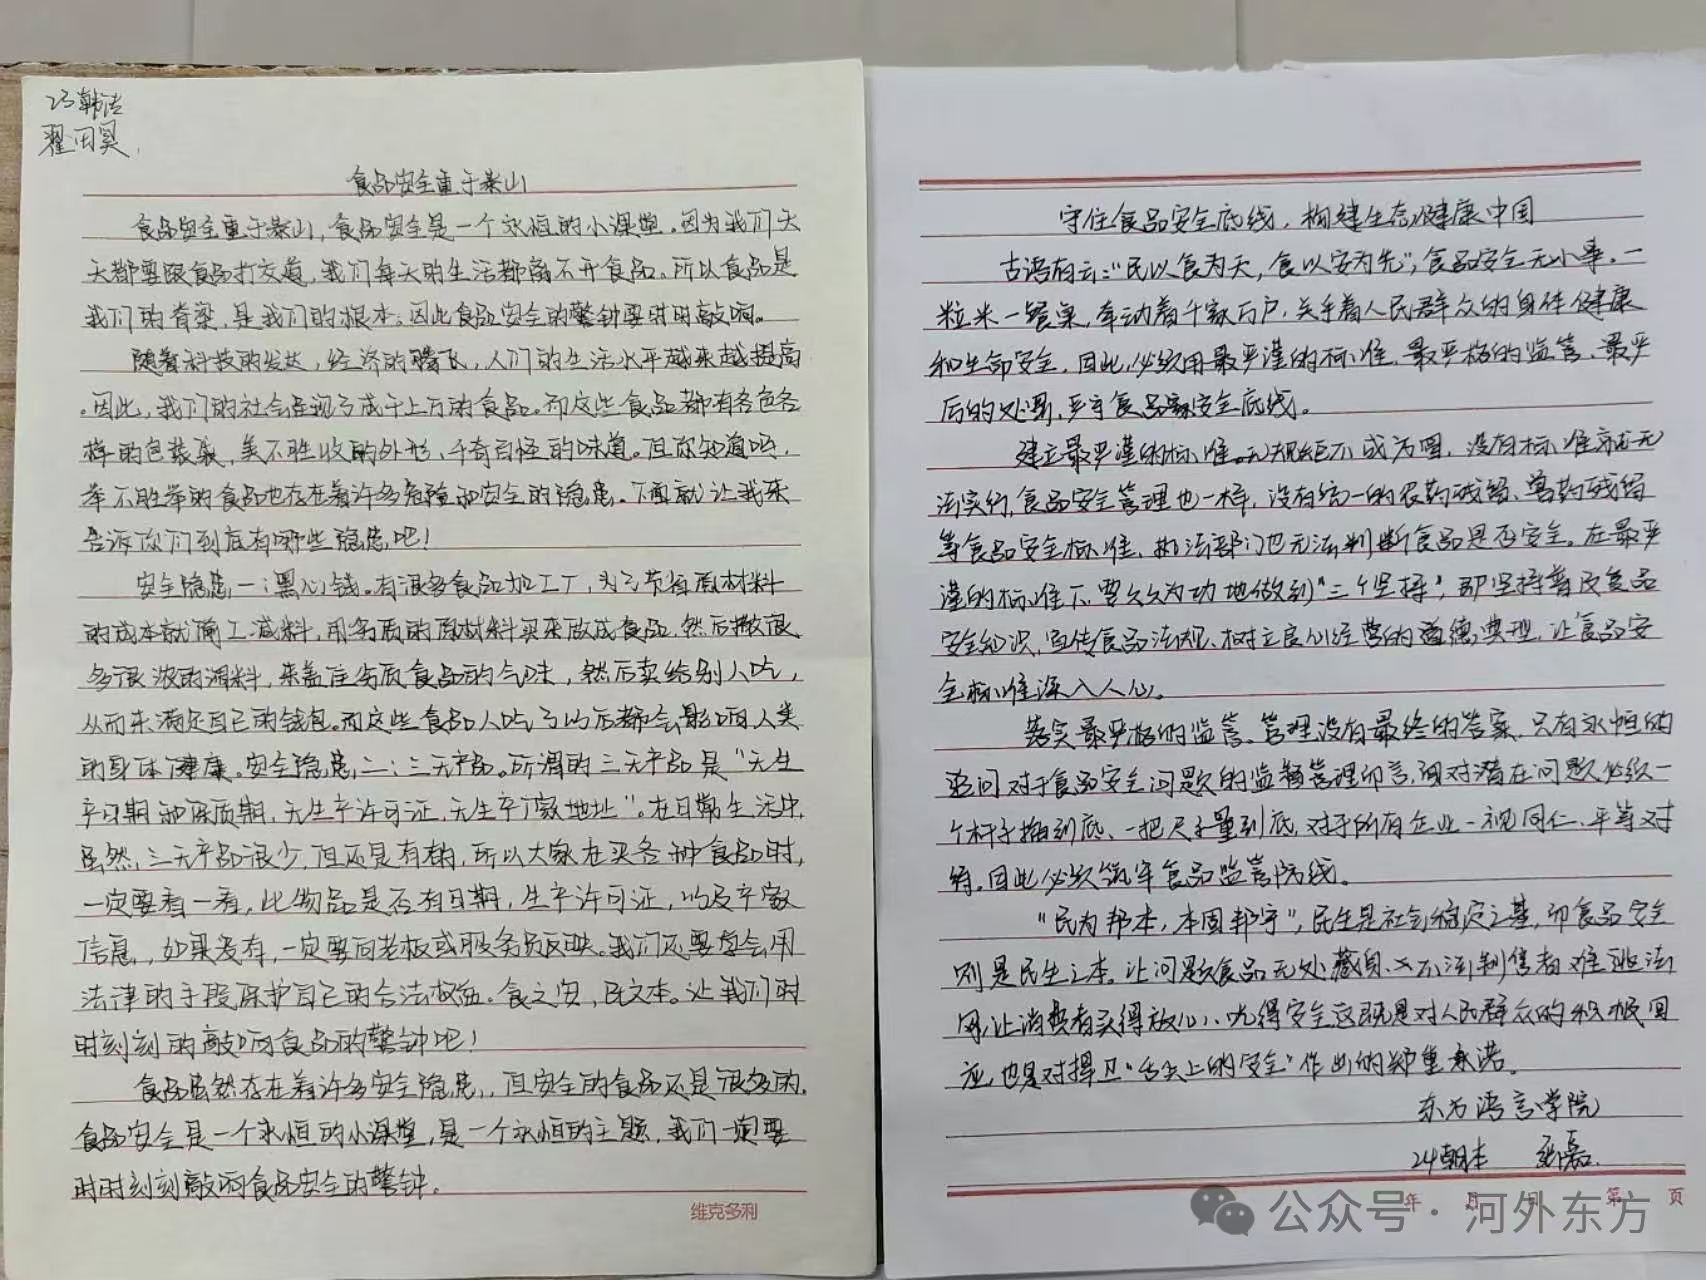 23韩法
翟田昊
食品安全重于泰山
食品安全重于泰山,食品安全是一个永恒的小课堂。因为我们天
天都要跟食品打交道,我们每天的生活都离不开食品。所以食品是
我们的脊梁,是我们的根本。因此食品安全的警钟要时时敲响。
随着科技的发达,经济的腾飞,人们的生活水平越来越提高
。因此,我们的社会呈现了成千上万的食品。而这些食品都有各色各
样的包装袋,美不胜收的外形、千奇百怪的味道。但你知道吗,
举不胜举的食品也存在着许多危险和安全的隐患。下面就让我来
告诉你们到底有哪些隐患吧!
安全隐患一:黑心钱。有很多食品加工厂,为了节省原材料
的成本就偷工减料,用劣质的原材料买来做成食品,然后撒很
多很浓的调料,来盖住劣质食品的气味,然后卖给别人吃,
从而来满足自己的钱包。而这些食品人吃了以后都会影响人类
的身体健康。安全隐患二:三无产品。所谓的三无产品是“无生
产日期和保质期,无生产许可证,无生产厂家地址”。在日常生活中,
虽然,三无产品很少,但还是有的,所以大家在买各种食品时,
一定要看一看,此物品是否有日期,生产许可证,以及产家
信息,如果没有,一定要向老板或服务员反映。我们还要学会用
法律的手段保护自己的合法权益。食之安,民之本。让我们时
时刻刻的敲响食品的警钟吧!
食品虽然存在着许多安全隐患,但安全的食品还是很多的,
食品安全是一个永恒的小课堂,是一个永恒的主题,我们一定要
时时刻刻敲响食品安全的警钟。
维克多利
守住食品安全底线,构建生态健康中国
古语有云:“民以食为天,食以安为先”,食品安全无小事,一
粒米一餐桌,牵动着千家万户,关乎着人民群众的身体健康
和生命安全,因此,必须用最严谨的标准、最严格的监管、最严
厉的处罚,严守食品安全底线。
建立最严谨的标准。无规矩不成方圆,没有标准就无
法实行,食品安全管理也一样,没有统一的农药残留、兽药残留
等食品安全标准,执法部门也无法判断食品是否安全。在最严
谨的标准下,要久久为功地做到“三个坚持”,即坚持普及食品
安全知识,宣传食品法规、树立良心经营的道德典型,让食品安
全标准深入人心。
落实最严格的监管。管理没有最终的答案,只有永恒的
追问对于食品安全问题的监督管理而言,面对潜在问题必须一
个杆子插到底、一把尺子量到底,对于所有企业一视同仁、平等对
待。因此必须筑牢食品监管防线。
“民为邦本,本固邦宁”,民生是社会稳定之基,而食品安全
则是民生之本。让问题食品无处藏身、不法制售者难逃法
网,让消费者买得放心、吃得安全这既是对人民群众的积极回
应,也是对捍卫“舌尖上的安全”作出的郑重承诺。
东方语言学院
24朝本
年 月 日 第 页
公众号·河外东方